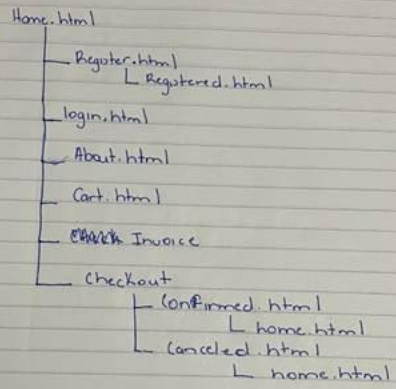 Home.html
Register.html
Registered.html
login.html
About.html
Cart.html
Invoice
Checkout
Confirmed.html
home.html
Canceled.html
home.html